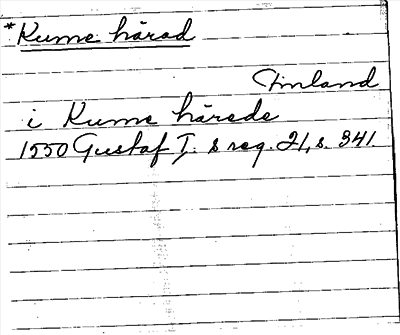 *Kume härad
Finland
i Kume härede
1550 Gustaf I:s reg. 21, s. 341.